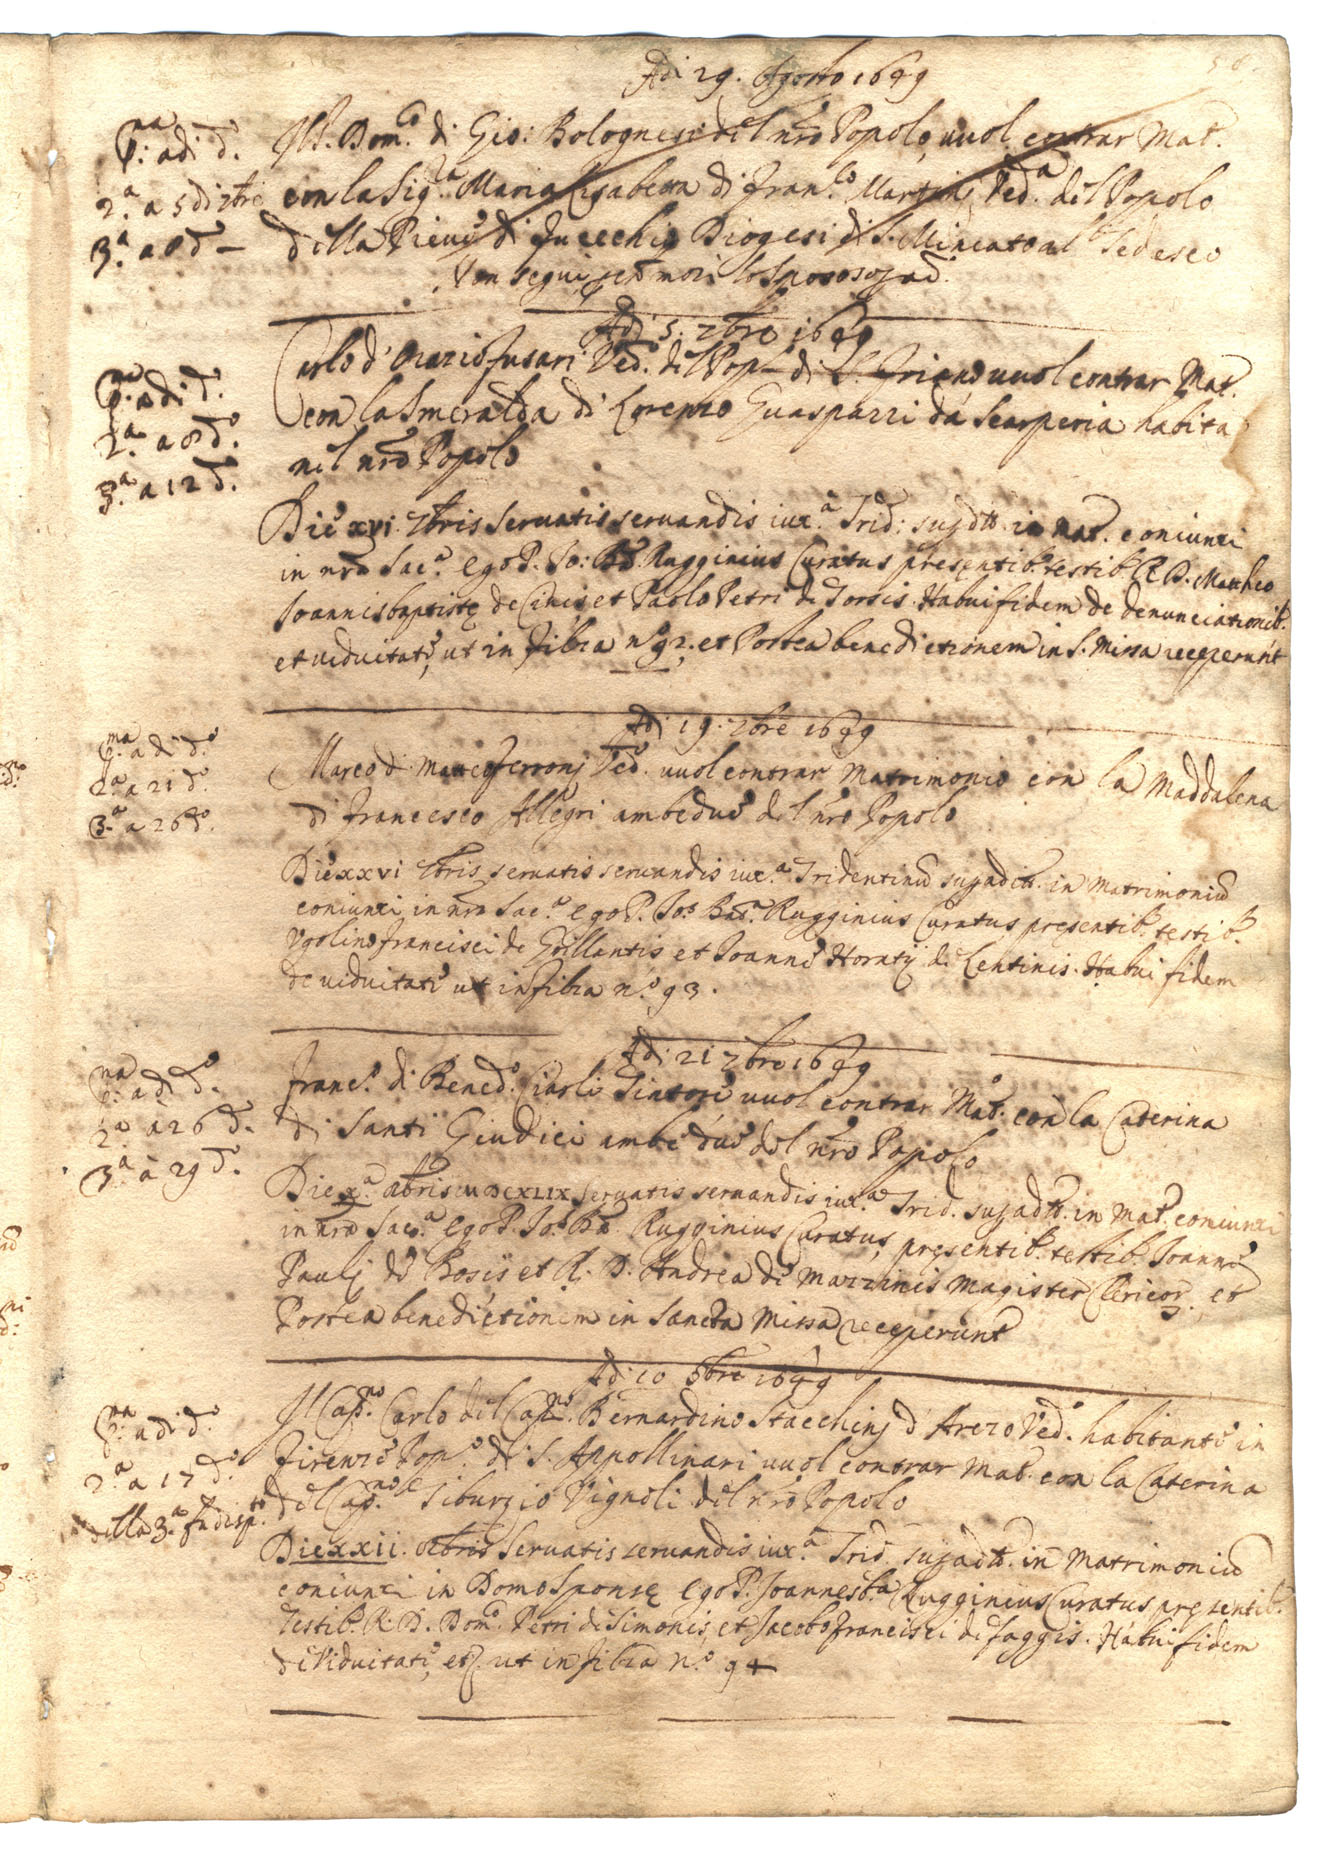 Adi 29. Agosto 1649
P.ma adi d.o
Il S.r Dom.co di Gio: Bolognesi del nro Popolo, vuol contrar Mat.o
2.a a 5 di 7bre
con la Sig.ra Maria Elisabetta di Fran.co Martini Ved.a del Popolo
3.a a 8 d.o
della Pieve di Fucechio Diogesi di S. Miniato al Tedesco
Non seguì, che morì lo sposo
Adi 5. 7bre 1649
P.ma adi d.o
Carlo d'Orazio Fusari Ved.o del Pop.o di S. Friano vuol contrar Mat.o
2.a a 8 d.o
con la Smeralda di Lorenzo Guasparri da Scarperia habita
3.a a 12 d.o
nel nro Popolo
Die xvi. 7bris servatis servandis iux.a Trid: supd.tt in Mat. coniunxi
in nra Sac.a ego P. Jo: Ba. Rugginius Curatus presentib. testib. R. D. Mattheo
Joannisbaptiste de Cinis et Paolo Petri de Torsis. Habui fidem de denunciationib.
et viduitate, ut in filza n.o 92. et Postea benedictionem in S. Missa receperunt
Adi 19. 7bre 1649
P.ma a di d.o
Marco di Matteo Ferroni Ved.o vuol contrar Matrimonio con la Maddalena
2.a a 21 d.o
di Francesco Allegri ambedue del nro Popolo
3.a a 26 d.o
Die xxvi 7bris servatis servandis iux.a Tridentinu supadictt. in Matrimoniu
coniunxi in nra Sac.a ego P. Jo: Bat.a Rugginius Curatus presentib. testib.
Ugolino Francisci de Grillantis et Joanne Horatij de Lentinis. Habui fidem
de viduitate ut in filza n.o 93.
Adi 21 7bre 1649
P.ma adi d.o
Franc.o di Bened.o Ciarli Tintore vuol contrar Mat.o con la Caterina
2.a a 26 d.o
di Santi Giudici ambedue del nro Popolo
3.a à 29 d.o
Die x.a 8bris MDCXLIX servatis servandis iux.a Trid. supadtt. in Mat. coniunxi
in nra Sac.a ego P. Jo: Ba. Rugginius Curatus, presentib. testib. Joanne
Pauli de Bosijs et R. D. Andrea de Mazzinis Magister Clericor. et
Postea benedictionem in Sancta Missa receperunt
Adi 10 8bre 1649
P.ma adi d.o
Il Cap.no Carlo del Cap.no Bernardino Stacchini d'Arezo Ved.o habitante in
2.a a 17 d.o
Firenze Pop.o di S. Appollinari vuol contrar Mat.o con la Caterina
della 3.a fu disp.to
del Cap.no Tiburzio Vignoli del nro Popolo
Die xxii. 8bris servatis servandis iux.a Trid. supadtt. in Matrimoniu
coniunxi in Domo Sponse ego P. Joannesb.a Rugginius Curatus presentib.
Testib. R. D. Dom.co Petri de Simonis, et Jacobo Francisci de Faggis. Habui fidem
de Viduitate, etc. ut in filza n.o 94